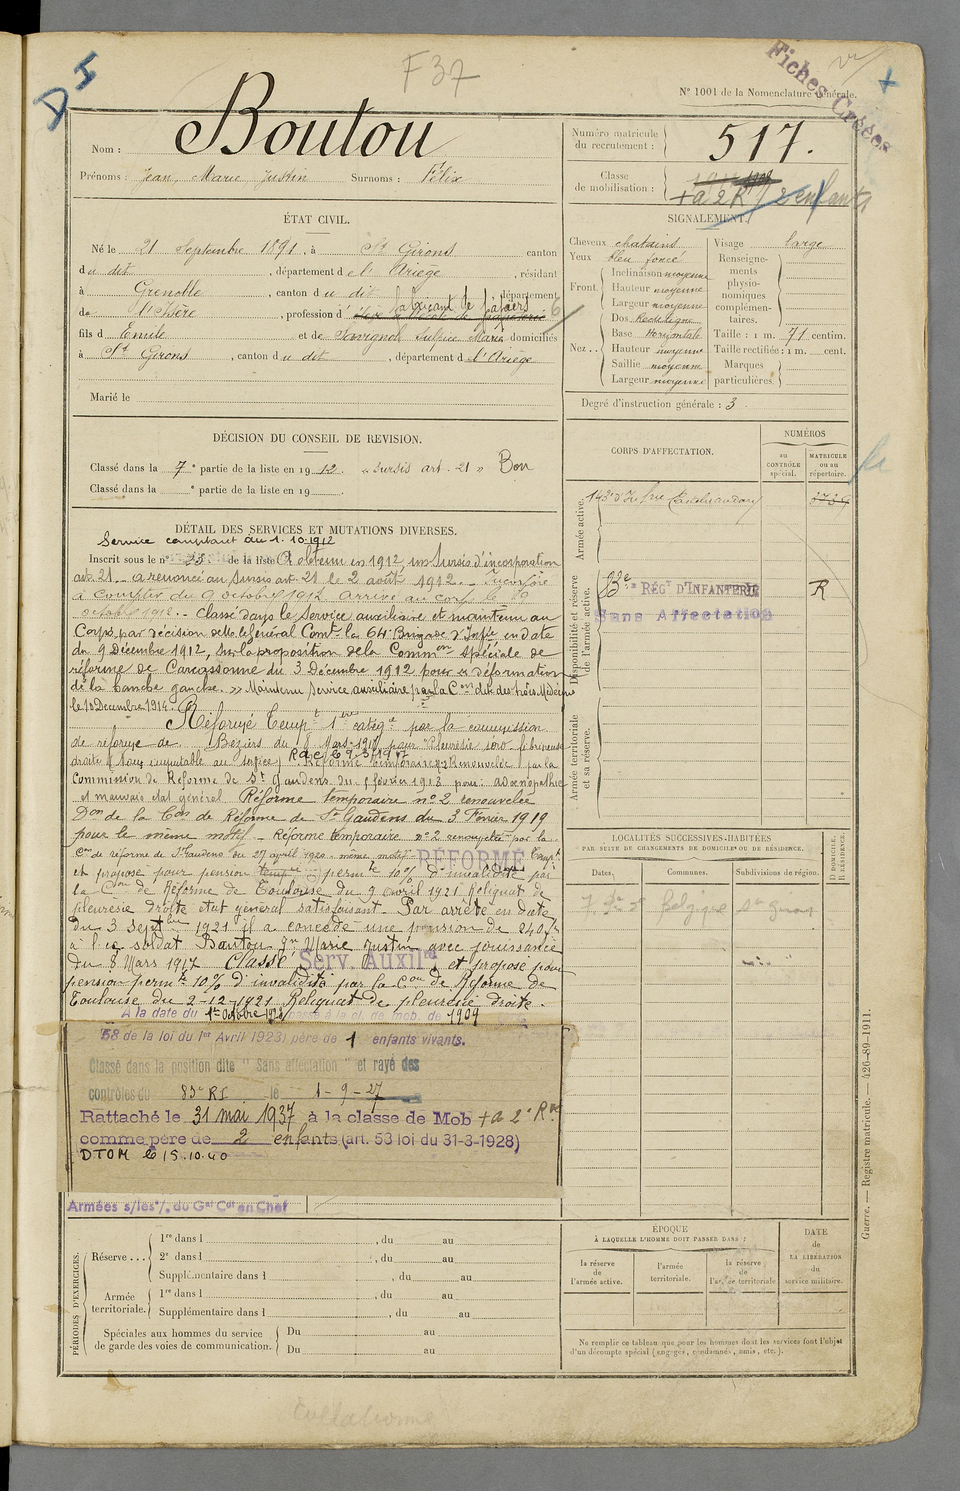 D I
F 37
Fiches Créées
N° 1001 de la Nomenclature Générale.
Nom : Boutou
Prénoms : Jean Marie Justin Surnoms : Félix
Numéro matricule du recrutement : 517.
Classe de mobilisation :
+ a 2 R 2 enfants
ÉTAT CIVIL.
Né le 21 Septembre 1891, à St Girons canton
du dit, département de l'Ariège, résidant
à Grenoble, canton du dit, département
de l'Isère, profession d fabricant de papiers
fils d Emile et de Sulpice Maria domiciliés
à St Girons, canton du dit, département d l'Ariège
Marié le
SIGNALEMENT.
Cheveux chatains
Yeux bleu foncé
Front. Inclinaison moyenne
Hauteur moyenne
Largeur moyenne
Nez.. Dos Rectiligne
Base Horizontale
Hauteur moyenne
Saillie moyenne
Largeur moyenne
Visage large
Renseignements physionomiques complémentaires.
Taille : 1 m. 71 centim.
Taille rectifiée : 1 m. cent.
Marques particulières.
Degré d'instruction générale : 3
DÉCISION DU CONSEIL DE REVISION.
Classé dans la 7e partie de la liste en 1912. « Sursis art. 21 » Bon
Classé dans la e partie de la liste en 19
DÉTAIL DES SERVICES ET MUTATIONS DIVERSES.
Service comptant du 1.10.1912
Inscrit sous le n° 25 de la liste A obtenu en 1912, un Sursis d'incorporation
art. 21. a renoncé au Sursis art. 21 le 2 août 1912. Incorporé
à compter du 9 octobre 1912 arrivé au corps le
octobre 1912. - Classé dans le Service auxiliaire et maintenu au
Corps par décision de le Général Comt la 64e Brigade d'Infie en date
du 9 Décembre 1912, sur la proposition de la Common spéciale de
réforme de Carcassonne du 3 Décembre 1912 pour « déformation
de la hanche gauche. » Maintenu Service auxiliaire par la Con des trois Médecins
le 10 Décembre 1914.
Réformé Tempt 1ère catége par la commission
de réforme de Béziers du 8 Mars 1917 pour "Pleurésie séro-fibrineuse
droite" Réforme temporaire n° 2 Renouvelée par la
Commission de Réforme de St Gaudens du février 1918 pour: adénopathie
et mauvais état général Réforme temporaire n° 2 renouvelée
Don de la Con de Réforme de St Gaudens du 3 Février 1919
pour le même motif - Réforme temporaire n° 2 renouvelée par la
Con de réforme de St Gaudens du 27 avril 1920 - même motif - RÉFORMÉ
et proposé pour pension permte 10% d'invalidité par
la Con de Réforme de Toulouse du 9 avril 1921 Reliquat de
pleurésie droite état général satisfaisant. Par arrêté en date
du 3 Septbre 1921 il a concédé une pension de 240
à l'ex soldat Boutou Jn Marie Justin avec jouissance
du 8 Mars 1917 Classé Serv. Auxil et proposé pour
pension permte 10% d'invalidité par la Con de Réforme de
Toulouse du 2-12-1921 Reliquat de pleurésie droite.
A la date du 1er Octobre passé à la cl. de mob. de 1909
58 de la loi du 1er Avril 1923) père de 1 enfants vivants.
Classé dans la position dite "Sans affectation" et rayé des
contrôles du 83e RI le 1-9-27
Rattaché le 31 mai 1937 à la classe de Mob + a 2e Rve
comme père de 2 enfants (art. 53 loi du 31-3-1928)
DTOM le 15.10.40
Armées s/les °/. du Gal Cdt en Chef
CORPS D'AFFECTATION.
NUMÉROS
au CONTRÔLE spécial.
MATRICULE ou au répertoire.
Armée active.
143e d'Infie Castelnaudary
Disponibilité et réserve de l'armée active.
RÉGT D'INFANTERIE R
Sans Affectation
Armée territoriale et sa réserve.
LOCALITÉS SUCCESSIVES HABITÉES
PAR SUITE DE CHANGEMENTS DE DOMICILE OU DE RÉSIDENCE.
Dates. Communes. Subdivisions de région.
D DOMICILE. R RÉSIDENCE.
Belgique
PÉRIODES D'EXERCICES.
Réserve ... 1re dans l , du au
2e dans l , du au
Supplémentaire dans l , du au
Armée territoriale. 1re dans l , du au
Supplémentaire dans l , du au
Spéciales aux hommes du service de garde des voies de communication. Du au
Du au
ÉPOQUE
À LAQUELLE L'HOMME DOIT PASSER DANS :
la réserve de l'armée active.
l'armée territoriale.
la réserve de l'armée territoriale
DATE de LA LIBÉRATION du service militaire.
Ne remplir ce tableau que pour les hommes dont les services font l'objet
d'un décompte spécial (engagés, condamnés, omis, etc.).
Guerre. — Registre matricule. — 426-89-1911.